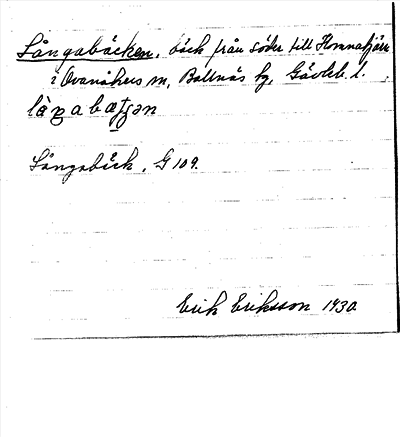 Långabäcken, bäck från söder till Homnatjärn
i Ovanåkers sn, Bollnäs tg, Gävleb. l.
Långabäck, G 109.
Erik Eriksson 1930